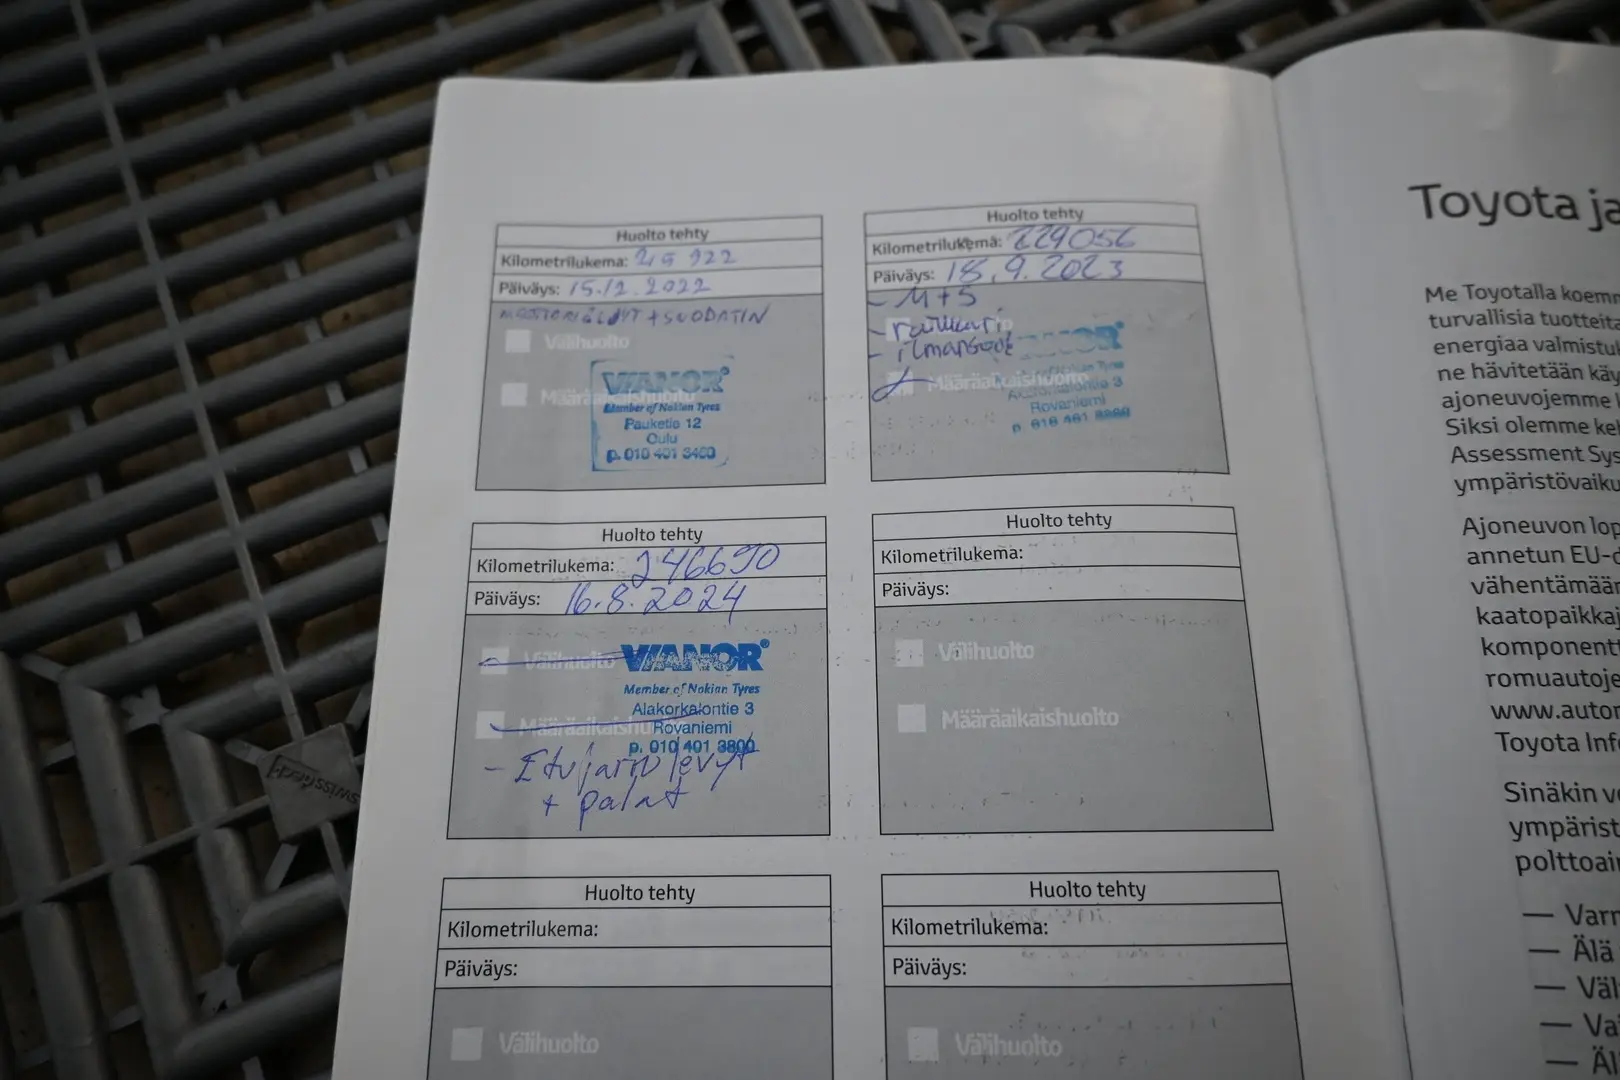 Huolto tehty
Kilometrilukema: 215 922
Päiväys: 15.12.2022
MOOTTORIÖLJYT + SUODATIN
Välihuolto
Määräaikaishuolto
VIANOR®
Member of Nokian Tyres
Pauketie 12
Oulu
p. 010 401 3460
Huolto tehty
Kilometrilukema: 229056
Päiväys: 18.9.2023
- M+S
- raikkari
- ilmansuod
Määräaikaishuolto
VIANOR®
Member of Nokian Tyres
Alakorkalontie 3
Rovaniemi
p. 010 401 3800
Huolto tehty
Kilometrilukema: 246690
Päiväys: 16.8.2024
Välihuolto
Määräaikaishuolto
VIANOR®
Member of Nokian Tyres
Alakorkalontie 3
Rovaniemi
p. 010 401 3800
- Etujarrulevyt
+ palat
Huolto tehty
Kilometrilukema:
Päiväys:
Välihuolto
Määräaikaishuolto
Huolto tehty
Kilometrilukema:
Päiväys:
Välihuolto
Huolto tehty
Kilometrilukema:
Päiväys:
Välihuolto
Toyota ja
Me Toyotalla koemm
turvallisia tuotteita
energiaa valmistuk
ne hävitetään käy
ajoneuvojemme
Siksi olemme keh
Assessment Sys
ympäristövaiku
Ajoneuvon lop
annetun EU-d
vähentämään
kaatopaikkaj
komponentt
romuautoje
www.autor
Toyota Info
Sinäkin vo
ympärist
polttoai
— Varm
— Älä
— Väl
— Va
— Äl
swisstrax